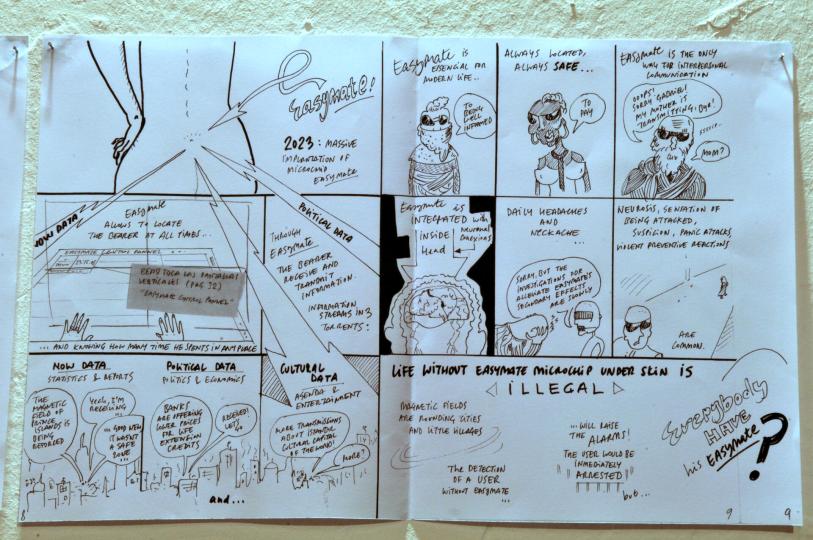 Easymate!
2023: MASSIVE
IMPLANTATION OF
MICROCHIP
EASYMATE
Easymate IS
ESENCIAL FOR
MODERN LIFE..
TO
BEING
WELL
INFORMED
ALWAYS LOCATED,
ALWAYS SAFE...
TO
PAY
EASYMATE IS THE ONLY
WAY FOR INTERPERSONAL
COMMUNICATION
OOOPS!
SORRY GABRIEL!
MY MOTHER IS
TRANSMITTING, BYE!
MOM?
NOW DATA
EASYMATE
ALLOWS TO LOCATE
THE BEARER AT ALL TIMES...
EASYMATE CONTROL PANNEL
(PAG 32)
"EASYMATE CONTROL PANNEL"
... AND KNOWING HOW MANY TIME HE SPENTS IN ANY PLACE
POLITICAL DATA
THROUGH
EASYMATE
THE BEARER
RECEIVE AND
TRANSMIT
INFORMATION.
INFORMATION
STREAMS IN 3
TORRENTS:
Easymate is
INTEGRATED with
INSIDE
Head
DAILY HEADACHES
AND
NECKACHE
...
SORRY, BUT THE
INVESTIGATIONS FOR
ALLEVIATE EASYMATE'S
SECONDARY EFFECTS
ARE SLOWLY
NEUROSIS, SENSATION OF
BEING ATTACKED,
SUSPICION, PANIC ATTACKS,
VIOLENT PREVENTIVE REACTIONS
ARE
COMMON.
NOW DATA
STATISTICS & REPORTS
THE
MAGNETIC
FIELD OF
PRINCE
ISLANDS IS
BEING
Yeah, I'M
RECEIVING
...
... GOOD NEWS
IT WASN'T
A SAFE
ZONE ...
POLITICAL DATA
POLITICS & ECONOMICS
BANKS
ARE OFFERING
LOWER PRICES
FOR LIFE
EXTENSION
CREDITS
LET'S
GO
CULTURAL
DATA
AGENDA &
ENTERTAINMENT
MORE TRANSMISSIONS
ABOUT ISTANBUL
CULTURAL CAPITAL
OF THE WORLD!
MORE?
and...
LIFE WITHOUT EASYMATE MICROCHIP UNDER SKIN IS
ILLEGAL
MAGNETIC FIELDS
ARE ROUNDING CITIES
AND LITTLE VILLAGES
THE DETECTION
OF A USER
WITHOUT EASYMATE
...
... WILL RAISE
THE ALARMS!
THE USER WOULD BE
INMEDIATELY
ARRESTED
but...
Everybody
HAVE
his EASYMATE
?
8
9
9